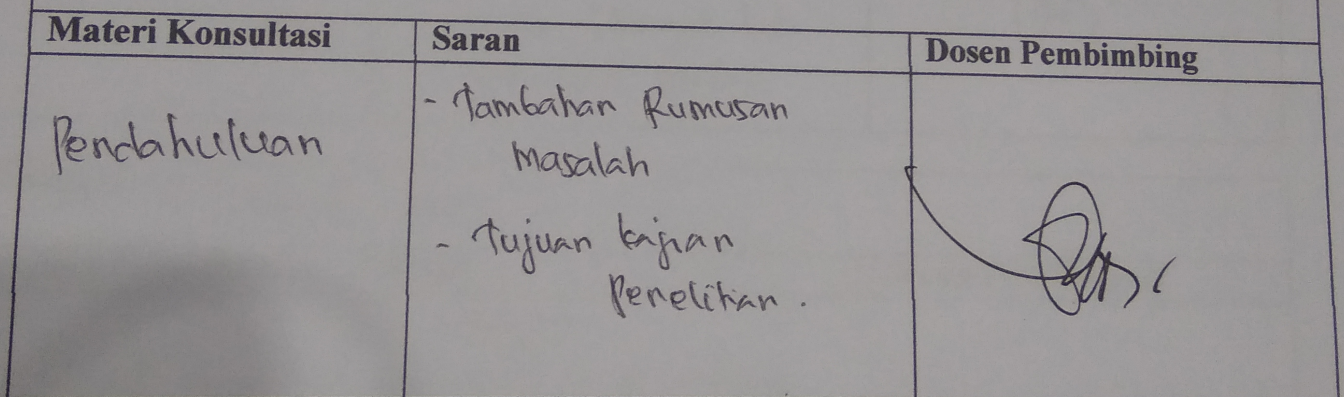 Materi Konsultasi
Saran
Dosen Pembimbing
Pendahuluan
- Tambahan Rumusan
Masalah
- Tujuan kajian
Penelitian.